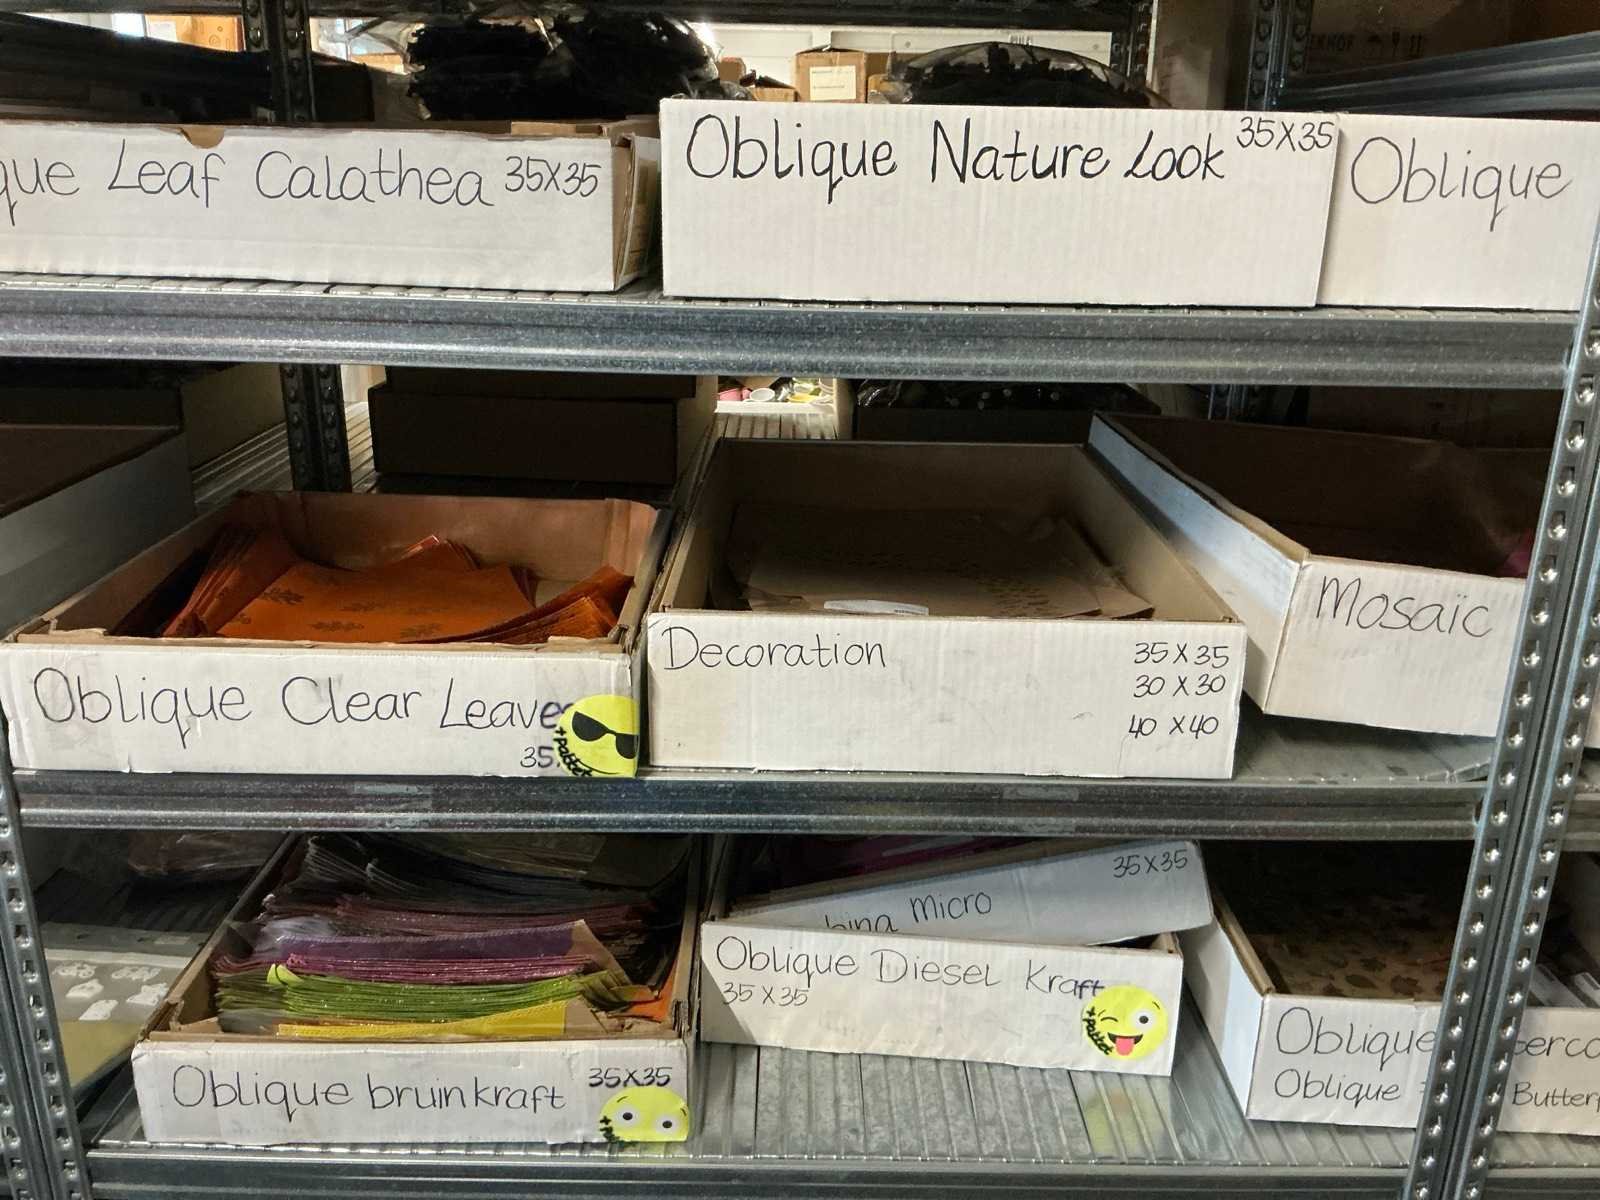 Leaf Calathea 35X35
Oblique Nature Look 35X35
Oblique
Oblique Clear Leaves
35
+pakket
Decoration
35 X 35
30 X 30
40 X 40
Mosaïc
35X35
Micro
Oblique Diesel Kraft
35 X 35
+pakket
Oblique bruinkraft 35X35
Oblique
Oblique